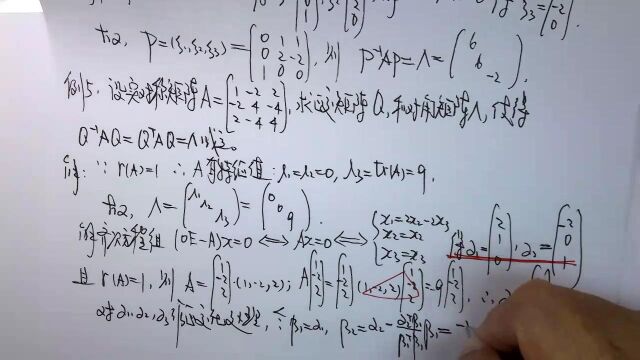 ξ₃=(-2 2 0).
故, P=(ξ₁,ξ₂,ξ₃)=(0 1 1 / 0 2 -2 / 1 0 0), 则 P⁻¹AP=Λ=(6 6 -2).
例5. 设实对称矩阵A=(1 -2 2 / -2 4 -4 / 2 -4 4), 求正交矩阵Q, 和对角矩阵Λ, 使得
Q⁻¹AQ=QᵀAQ=Λ成立。
解: ∵ r(A)=1 ∴ A有特征值: λ₁=λ₂=0, λ₃=tr(A)=9.
故, Λ=(λ₁ λ₂ λ₃)=(0 0 9).
解齐次方程组 (0E-A)x=0 ⟺ Ax=0 ⟺ {x₁=2x₂-2x₃ x₂=x₂ x₃=x₃ 得 α₁=(2 1 0), α₂=(-2 0 1)
且 r(A)=1, 则 A=(1 -2 2)·(1,-2,2); A(1 -2 2)=(1 -2 2)(1,-2,2)(1 -2 2)=9(1 -2 2), ∴ α
对α₁,α₂,α₃ : β₁=α₁, β₂=α₂-